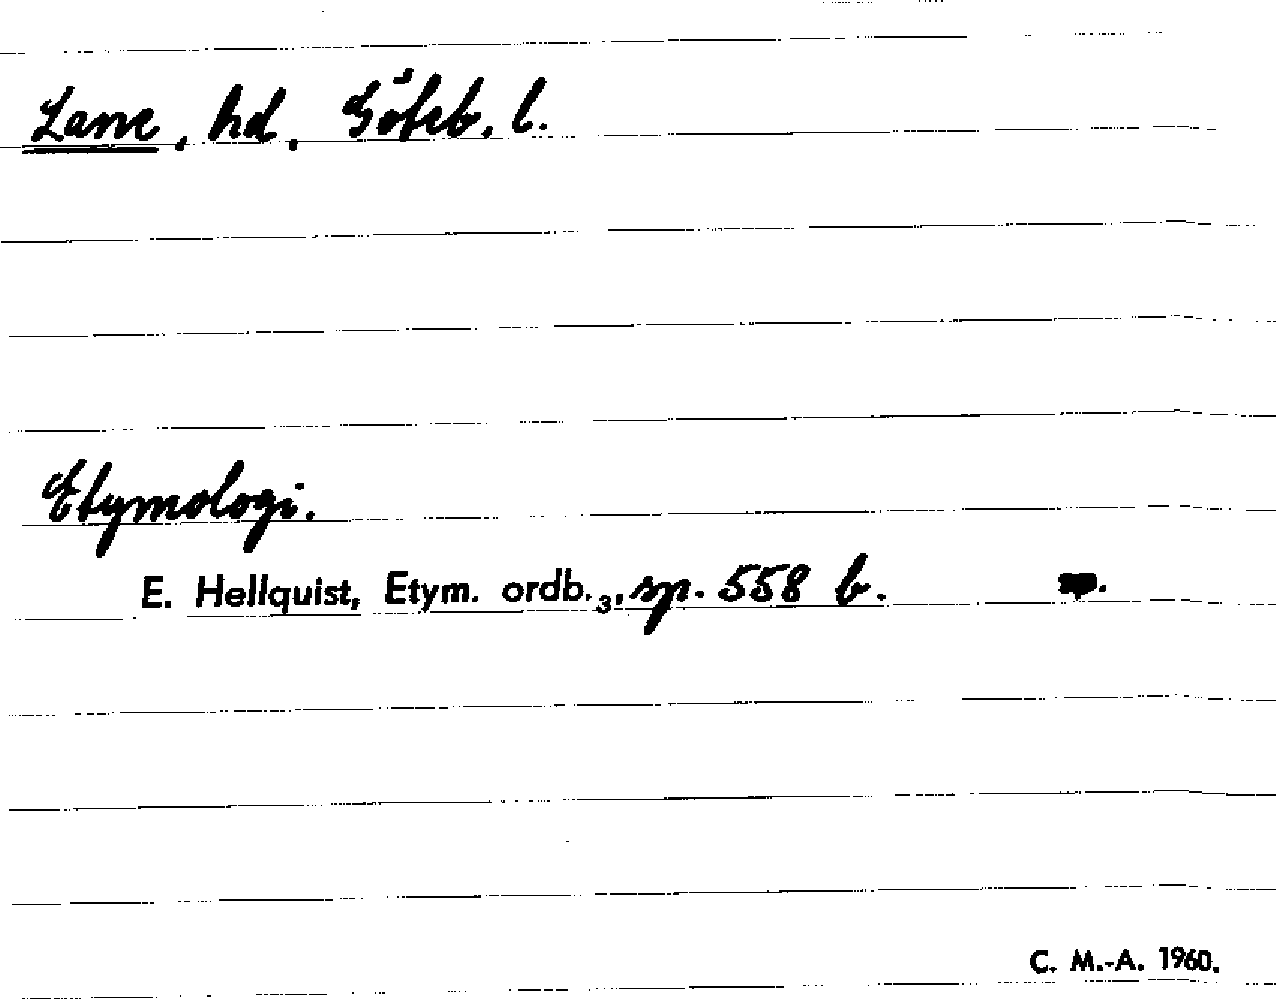 Lane, hd, Göteb. l.
Etymologi.
E. Hellquist, Etym. ordb.₃, sp. 558 b.
C. M.-A. 1960.